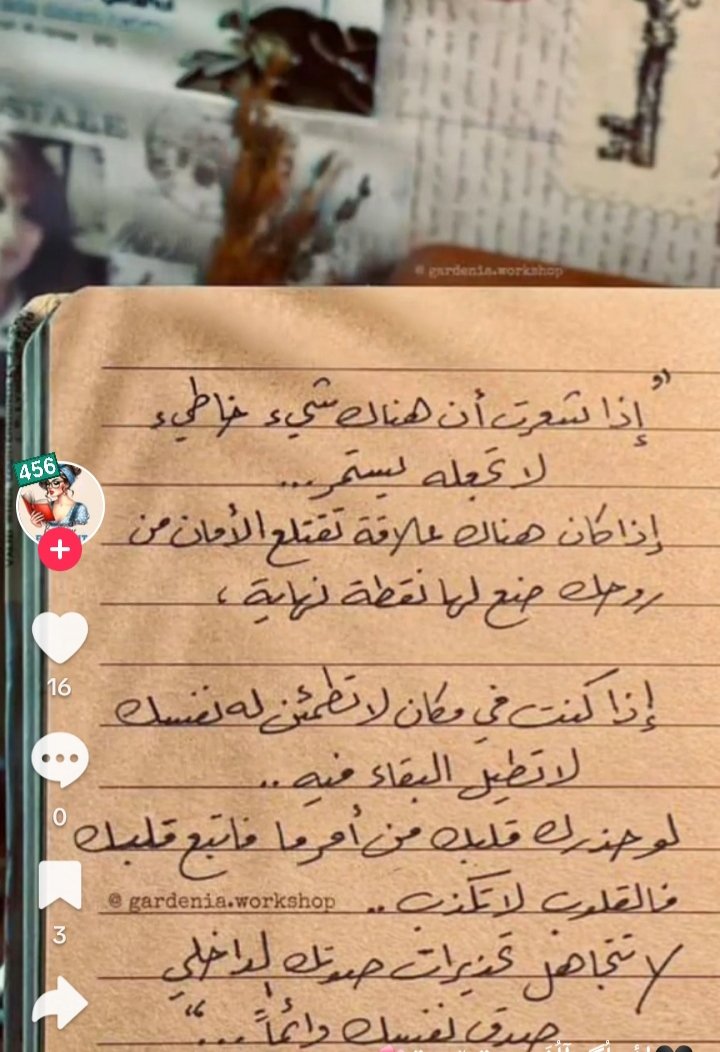 @ gardenia.workshop
”إذا شعرت أن هناك شيء خاطيء
لا تجعله يستمر...
إذا كان هناك علاقة تقتلع الأمان من
روحك ضع لها نقطة نهاية ،
إذا كنت في مكان لا تطمئن له نفسك
لا تطيل البقاء فيه ..
لو حذرك قلبك من أمر ما فاتبع قلبك
فالقلوب لا تكذب ..
@ gardenia.workshop
لا تتجاهل تحذيرات صوتك الداخلي
صدق نفسك دائماً ...“
456
16
0
3